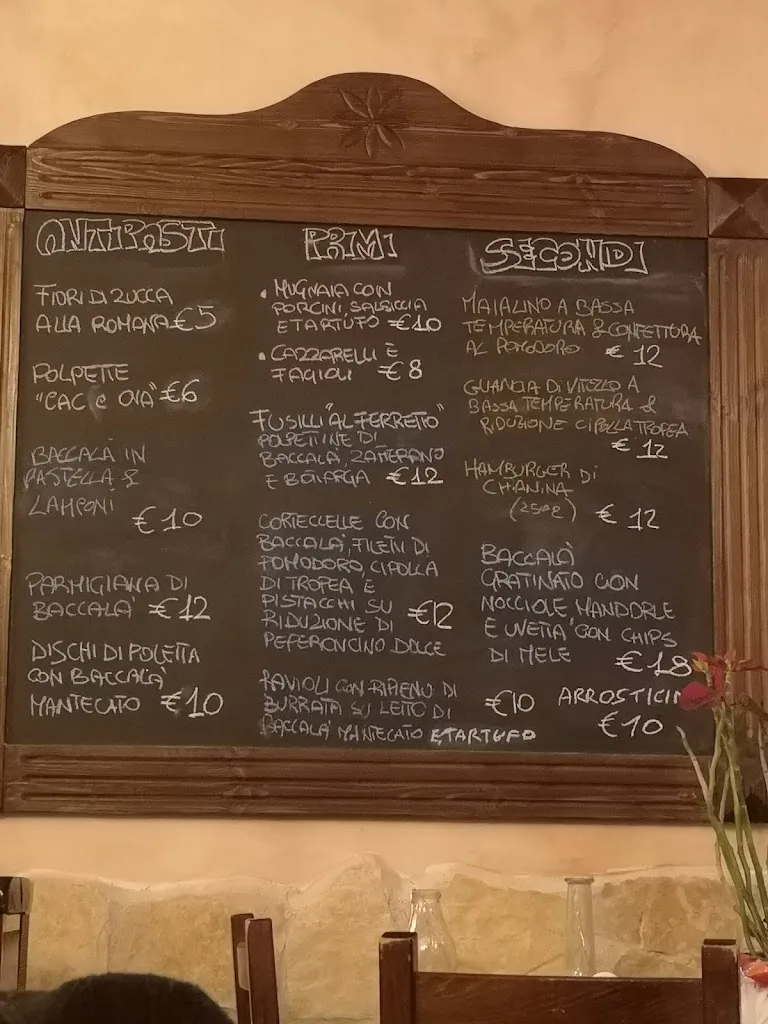 ANTIPASTI
FIORI DI ZUCCA
ALLA ROMANA €5
POLPETTE
"CAC E OVA" €6
BACCALÀ IN
PASTELLA &
LAMPONI
€10
PARMIGIANA DI
BACCALA' €12
DISCHI DI POLETTA
CON BACCALÀ
MANTECATO €10
PRIMI
• MUGNAIA CON
PORCINI, SALSICCIA
E TARTUFO €10
• CAZZARELLI E
FAGIOLI €8
FUSILLI "AL FERRETTO"
POLPETTINE DI
BACCALÀ, ZAFFERANO
E BOTTARGA €12
CORTECCELLE CON
BACCALA', FILETTI DI
POMODORO, CIPOLLA
DI TROPEA E
PISTACCHI SU €12
RIDUZIONE DI
PEPERONCINO DOLCE
RAVIOLI CON RIPIENO DI
BURRATA SU LETTO DI €10
BACCALÀ MANTECATO E TARTUFO
SECONDI
MAIALINO A BASSA
TEMPERATURA & CONFETTURA
AL POMODORO € 12
GUANCIA DI VITELLO A
BASSA TEMPERATURA &
RIDUZIONE CIPOLLA TROPEA
€ 12
HAMBURGER DI
CHIANINA
(250g) € 12
BACCALÀ
GRATINATO CON
NOCCIOLE MANDORLE
E UVETTA CON CHIPS
DI MELE €18
ARROSTICIN
€10